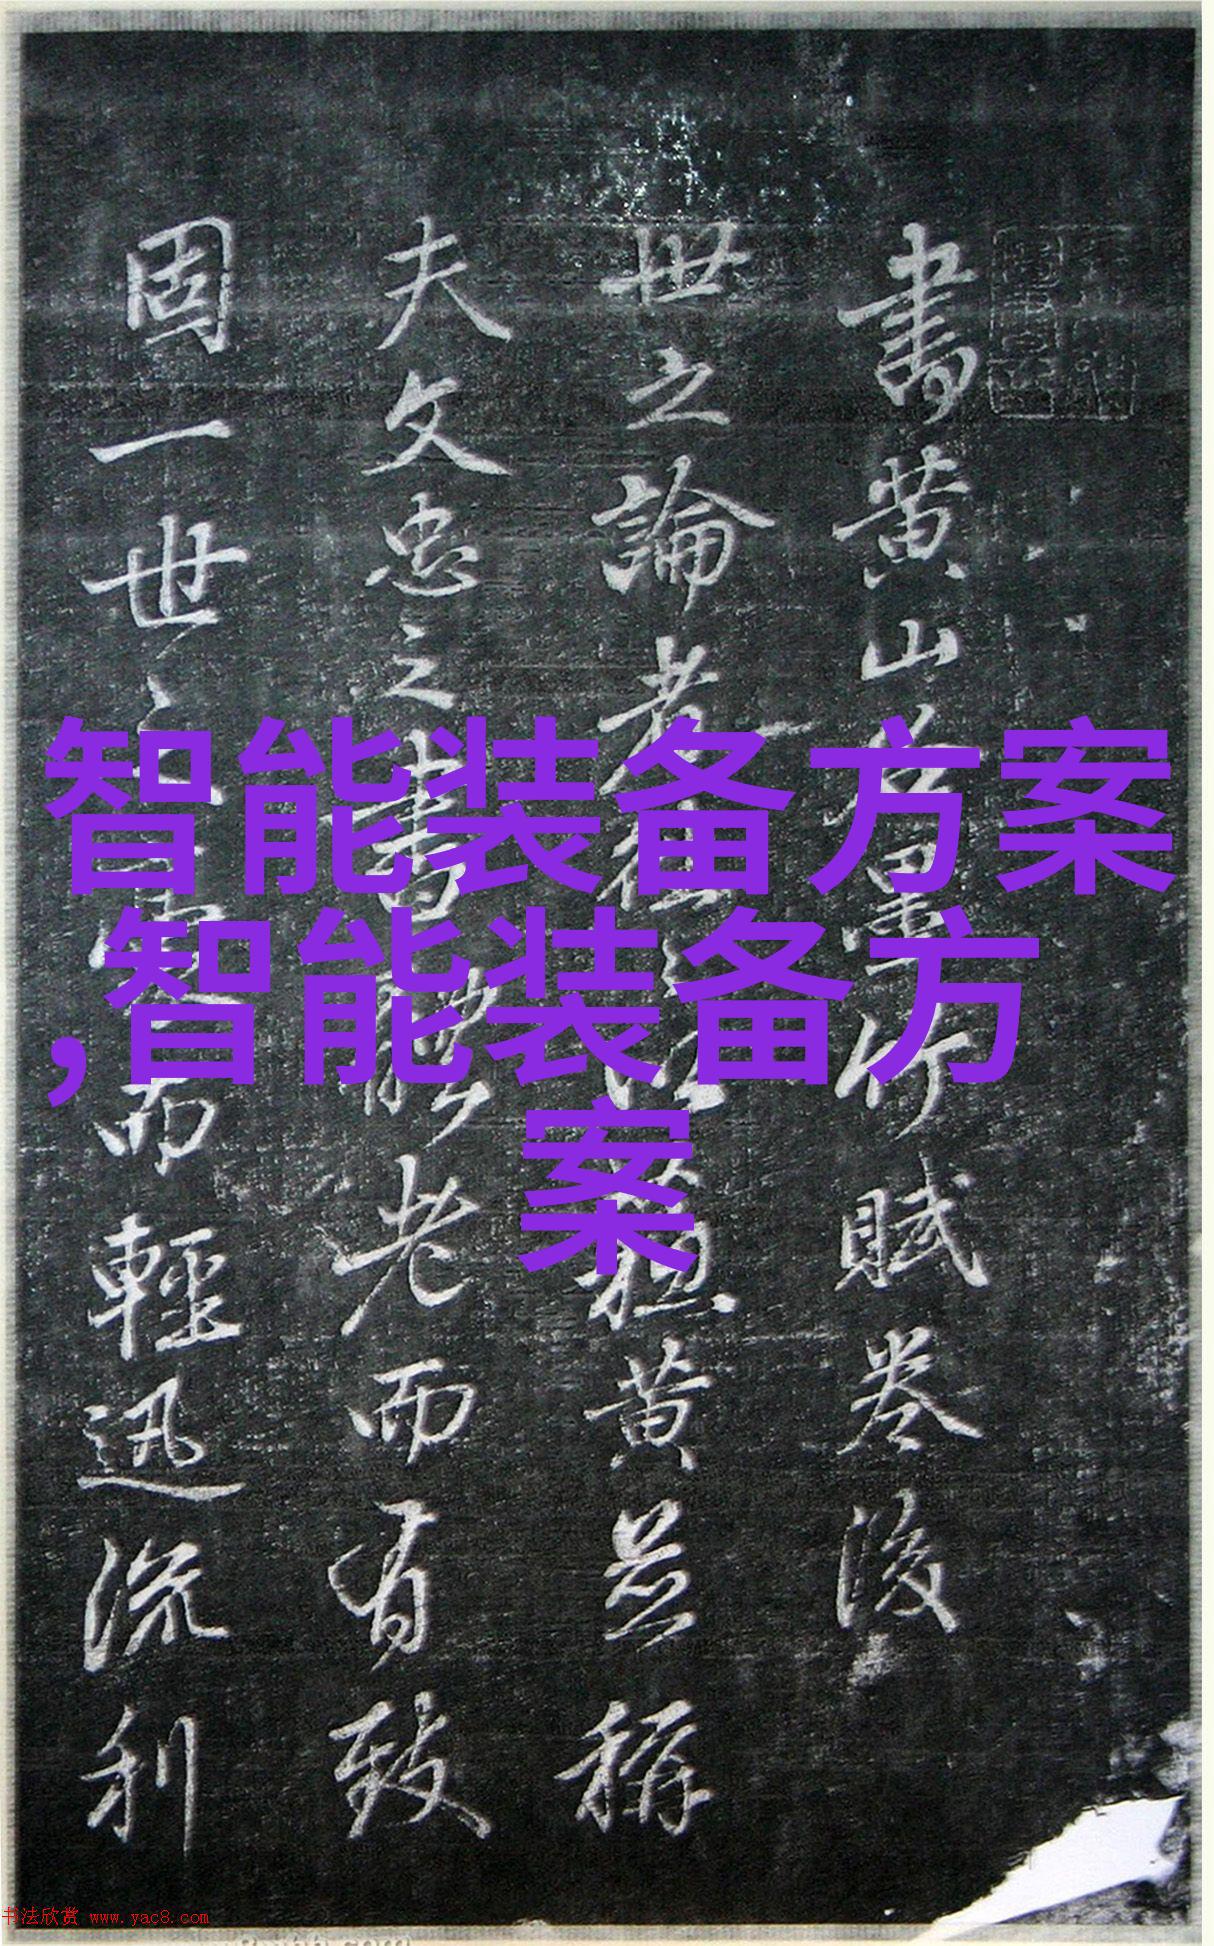 書黄山谷墨竹賦卷後
世之論者往以蘇黄並稱
夫文忠之書體老而有致
固一世之而輕迅流利
智能装备方案
,智能装备方
案
书法欣赏 www.yac8.com